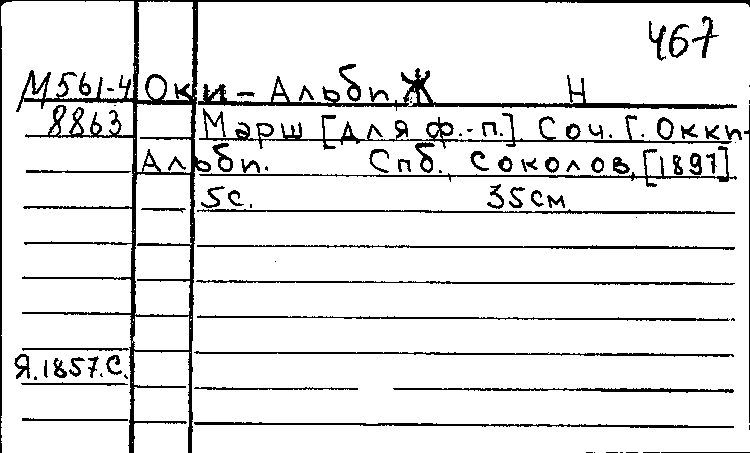 467
М561-4 Оки-Альби, Ж Н
8863 Марш [для ф.-п.]. Соч. Г. Окки-
Альби. Спб., Соколов, [1897].
5с. 35см
Я.1857.С.